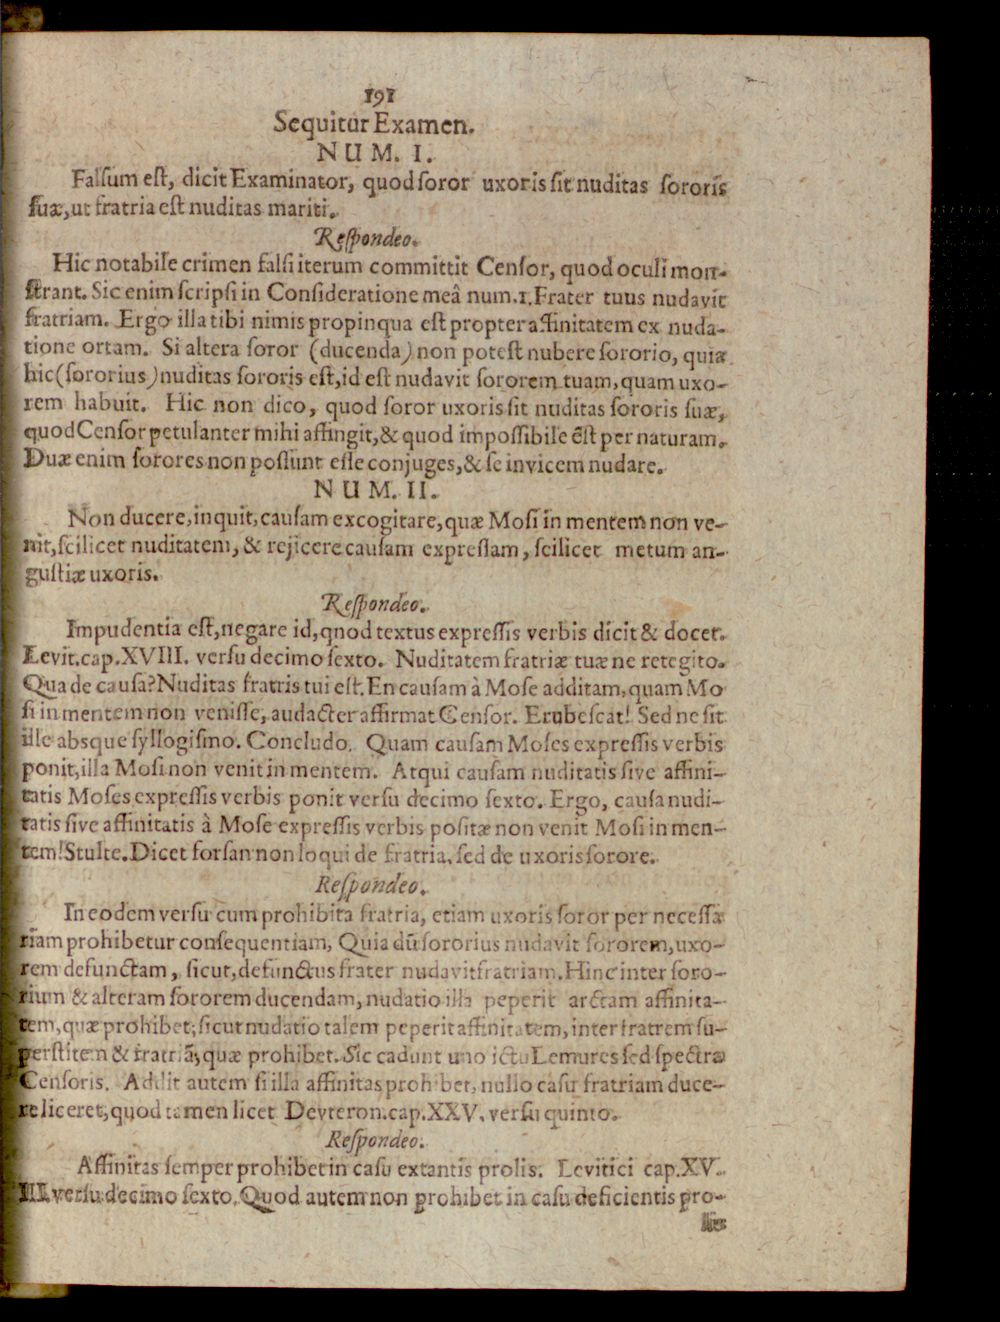 191
Sequitur Examen.
NUM. I.
Falsum est, dicit Examinator, quod soror uxoris sit nuditas sororis
suæ, ut fratria est nuditas mariti.
Respondeo.
Hic notabile crimen falsi iterum committit Censor, quod oculi mon-
strant. Sic enim scripsi in Consideratione meâ num. 1. Frater tuus nudavit
fratriam. Ergo illa tibi nimis propinqua est propter affinitatem ex nuda-
tione ortam. Si altera soror (ducenda) non potest nubere sororio, quia
hic (sororius) nuditas sororis est, id est nudavit sororem tuam, quam uxo-
rem habuit. Hic non dico, quod soror uxoris sit nuditas sororis suæ,
quod Censor petulanter mihi affingit, & quod impossibile est per naturam.
Duæ enim sorores non possunt esse conjuges, & se invicem nudare.
NUM. II.
Non ducere, inquit, causam excogitare, quæ Mosi in mentem non ve-
nit, scilicet nuditatem, & rejicere causam expressam, scilicet metum an-
gustiæ uxoris.
Respondeo.
Impudentia est, negare id, qnod textus expressis verbis dicit & docet.
Levit. cap. XVIII. versu decimo sexto. Nuditatem fratriæ tuæ ne retegito.
Qua de causa? Nuditas fratris tui est. En causam à Mose additam, quam Mo
si in mentem non venisse, audacter affirmat Censor. Erubescat! Sed ne sit
ille absque syllogismo. Concludo. Quam causam Moses expressis verbis
ponit, illa Mosi non venit in mentem. Atqui causam nuditatis sive affini-
tatis Moses expressis verbis ponit versu decimo sexto. Ergo, causa nudi-
tatis sive affinitatis à Mose expressis verbis positæ non venit Mosi in men-
tem! Stulte. Dicet forsan non loqui de fratria, sed de uxoris sorore.
Respondeo.
In eodem versu cum prohibita fratria, etiam uxoris soror per necessa
riam prohibetur consequentiam, Quia dū sororius nudavit sororem, uxo-
rem defunctam, sicut, defunctus frater nudavit fratriam. Hinc inter soro-
rium & alteram sororem ducendam, nudatio illa peperit arctam affinita-
tem, quæ prohibet; sicut nudatio talem peperit affinitatem, inter fratrem su-
perstitem & fratriā, quæ prohibet. Sic cadunt uno ictu Lemures sed spectra
Censoris. Addit autem si illa affinitas prohibet, nullo casu fratriam duce-
re liceret, quod tamen licet Devteron. cap. XXV. versu quinto.
Respondeo.
Affinitas semper prohibet in casu extantis prolis. Levitici cap. XV-
III. versu decimo sexto. Quod autem non prohibet in casu deficientis pro-
lis